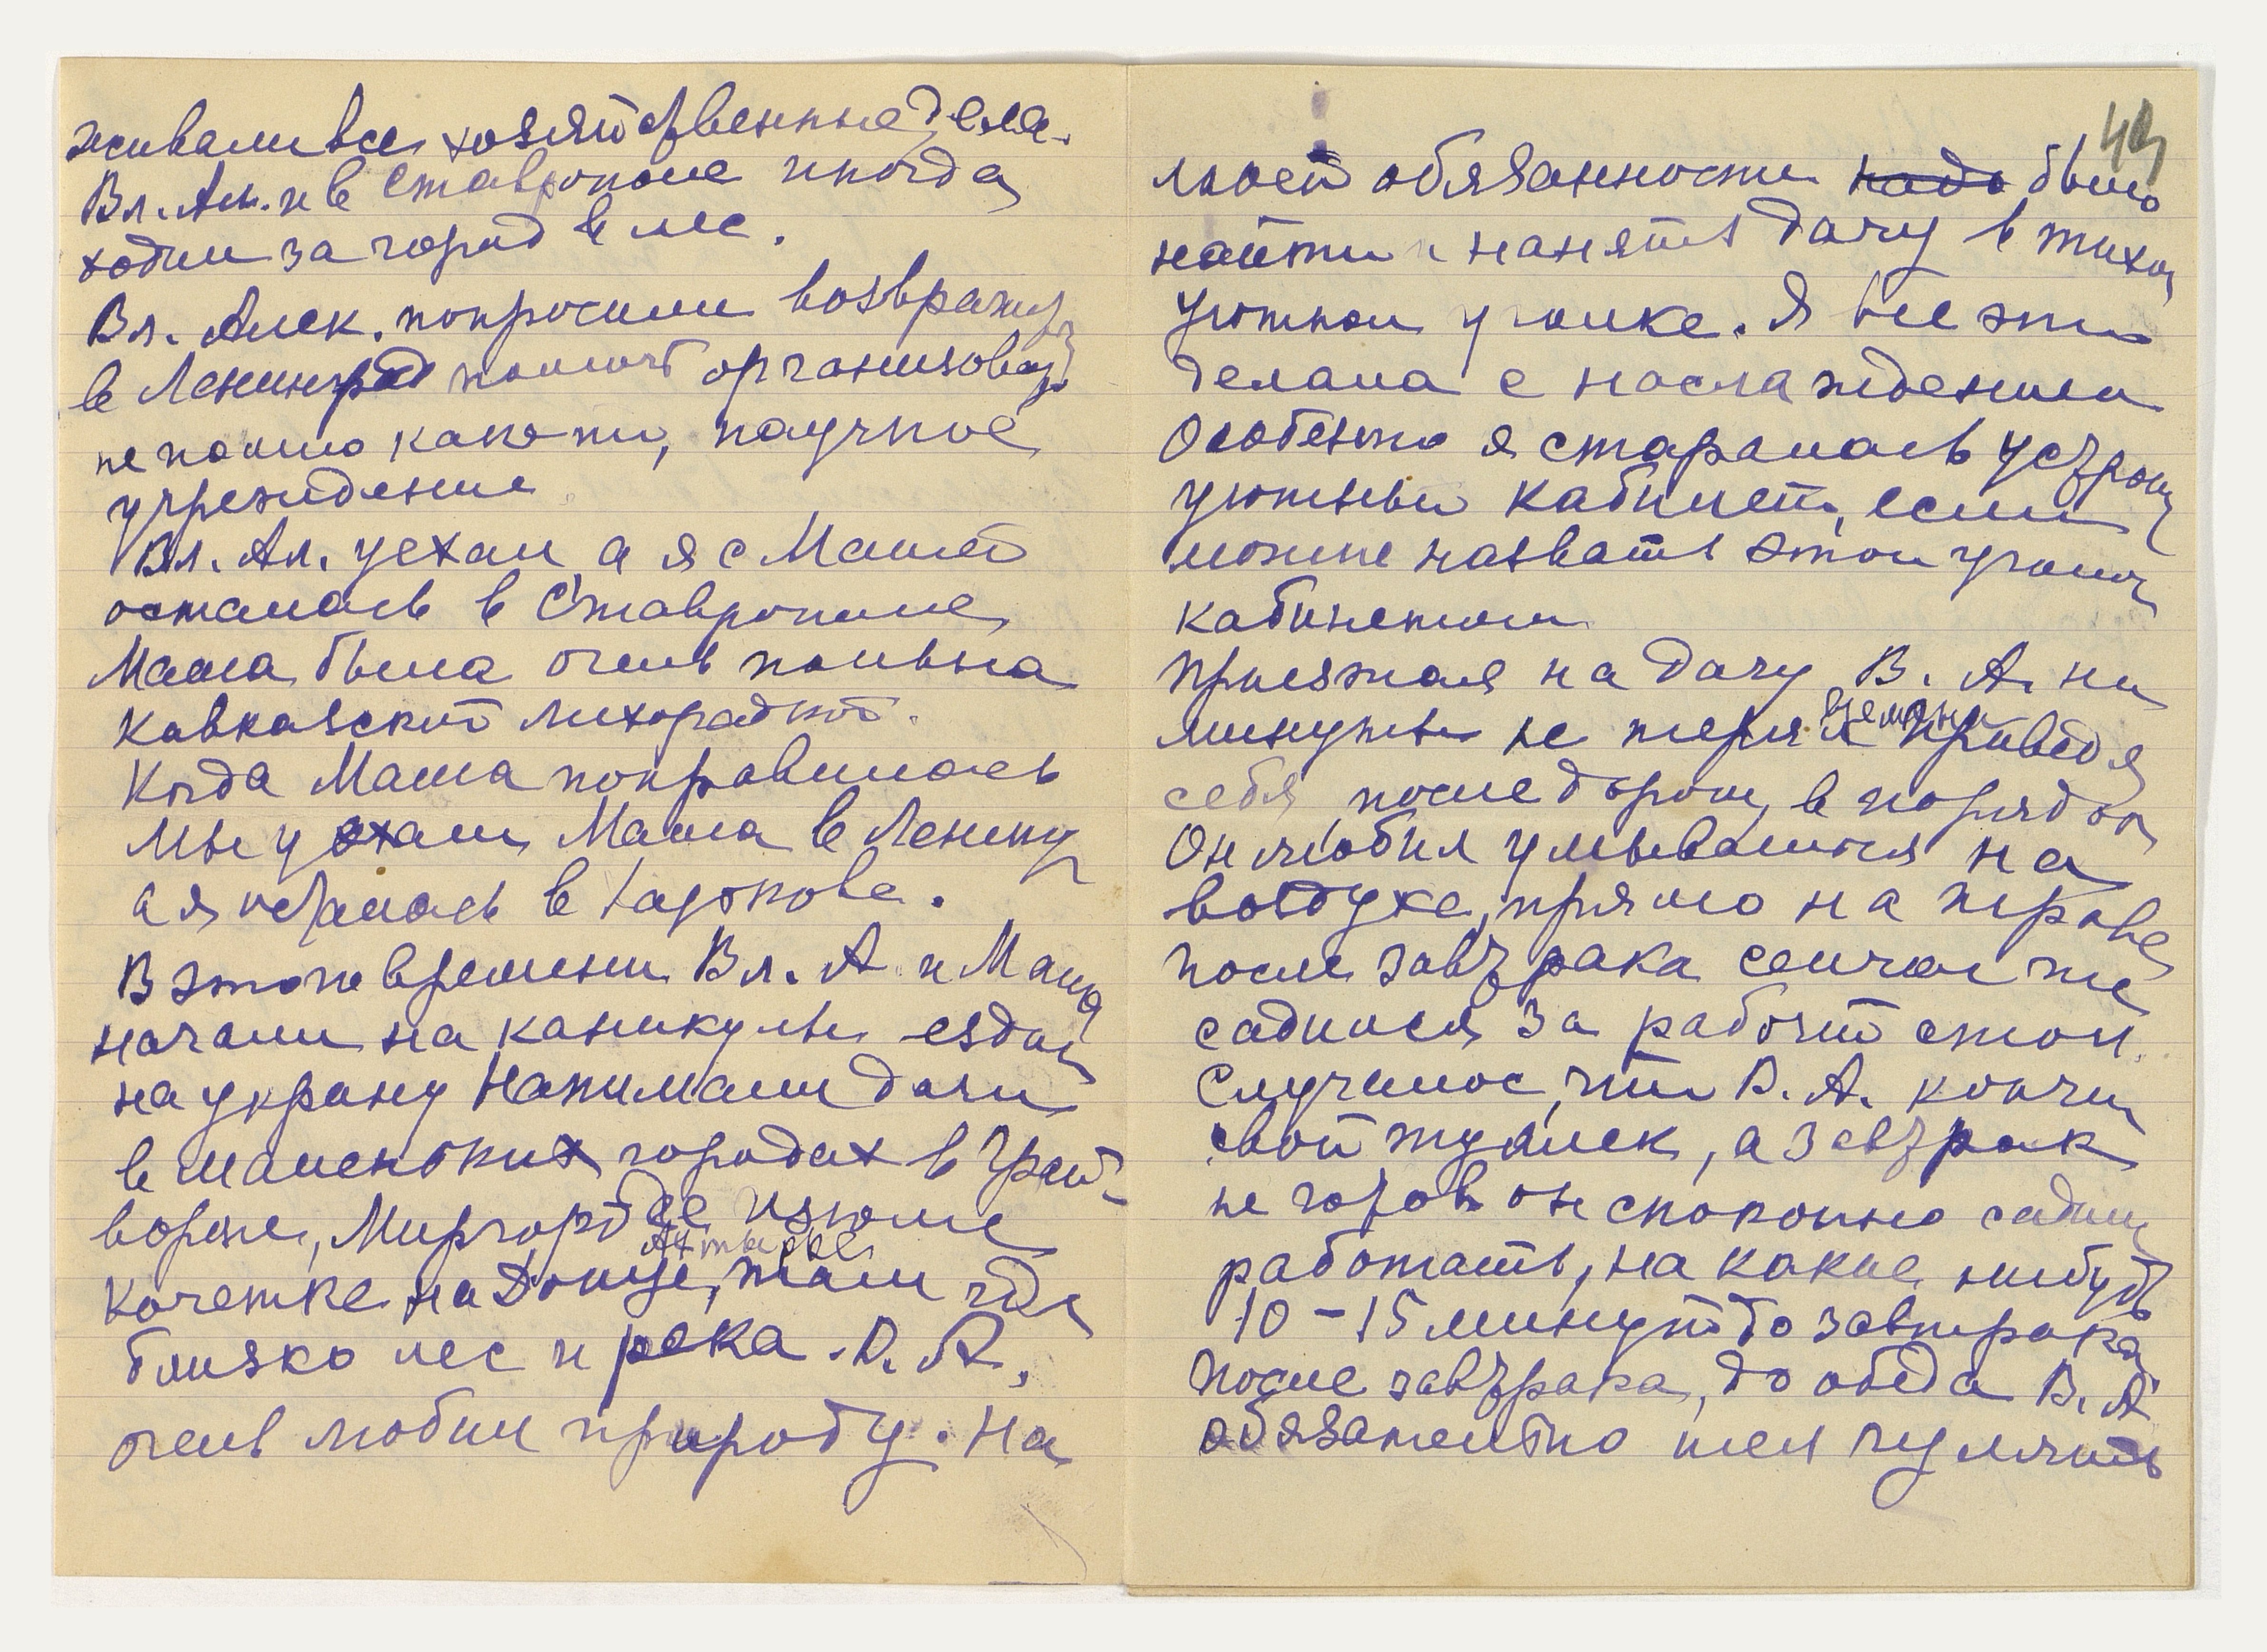 живали все хозяйственные дела.
Вл. Ал. и в Ставрополе иногда
ходил за город в лес.
Вл. Алек. попросили возвратиться
в Ленинград помочь организовать
не помню какое-то, научное
учреждение
Вл. Ал. уехал, а я с Машей
осталась в Ставрополе,
Маша была очень больна
Кавказской лихорадкой.
Когда Маша поправилась
мы уехали, Маша в Ленингр
а я осталась в Харькове.
В это время Вл. А и Маша
начали на каникулы ездить
на украину Нанимали дачи
в маленьких городах в Грай-
вороне, Миргороде, Изюме
Ахтырке,
Кочетке на Донце, там где
близко лес и река. В. А,
очень любил природу. На
44
моей обязанности надо было
найти и нанять дачу в тихом
уютном уголке. Я все это
делала с наслаждением
Особенно я старалась устроить
уютный кабинет, если
можно назвать этот уголок
кабинетом
Приезжая на дачу В. А. ни
времени
минуты не терял приведя
себя, после дороги, в порядок
Он любил умываться на
воздухе, прямо на траве
после завтрака сейчас же
садился за рабочий стол.
Случалось, что В. А. кончил
свой туалет, а завтрак
не готов он спокойно садился
работать, на какие нибудь
10-15 минут до завтрака
После завтрака, до обеда В. А
обязательно шел гулять